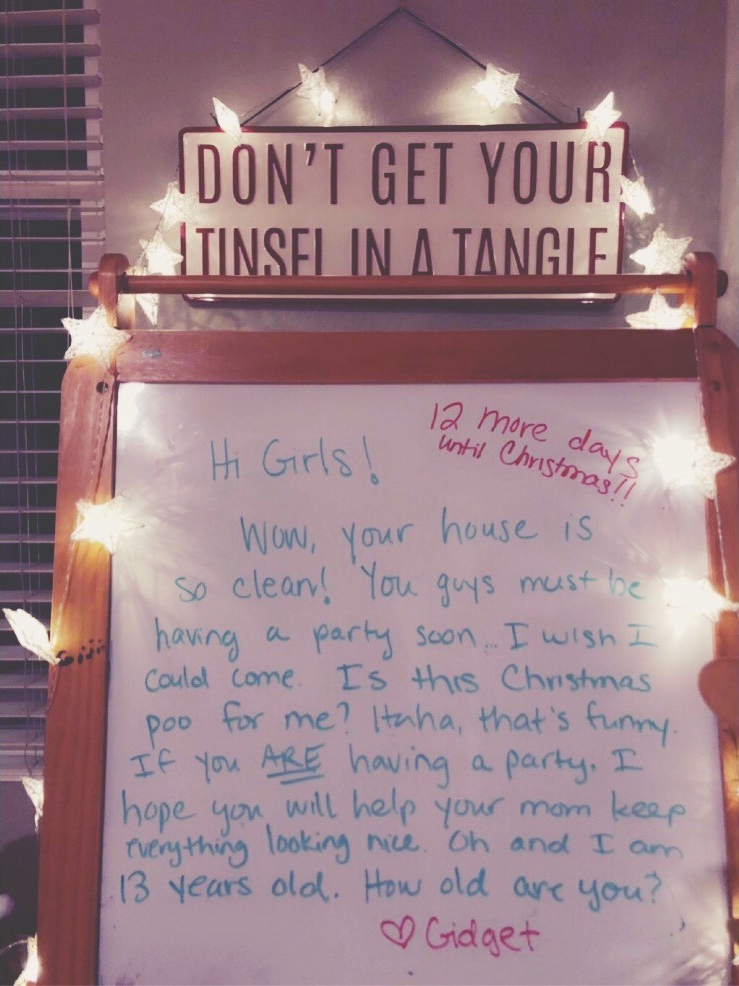 DON'T GET YOUR
TINSEL IN A TANGLE
12 more days
until Christmas!!
Hi Girls!
Wow, your house is
so clean! You guys must be
having a party soon... I wish I
could come. Is this Christmas
poo for me? Haha, that's funny.
If you ARE having a party, I
hope you will help your mom keep
everything looking nice. Oh and I am
13 years old. How old are you?
♡ Gidget